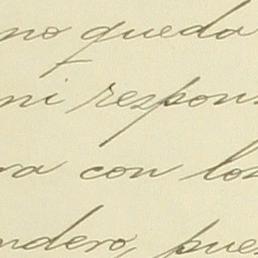 no queda
ni respons
ra con los
ndero, pues